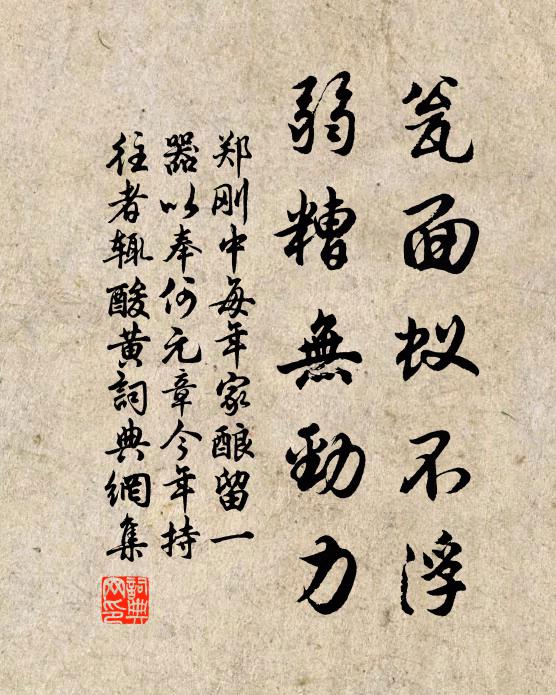 瓮面蚁不浮
弱糟無勁力
郑刚中每年家酿留一
器以奉何元章今年持
往者辄酸黄詞典網集
詞典
网印